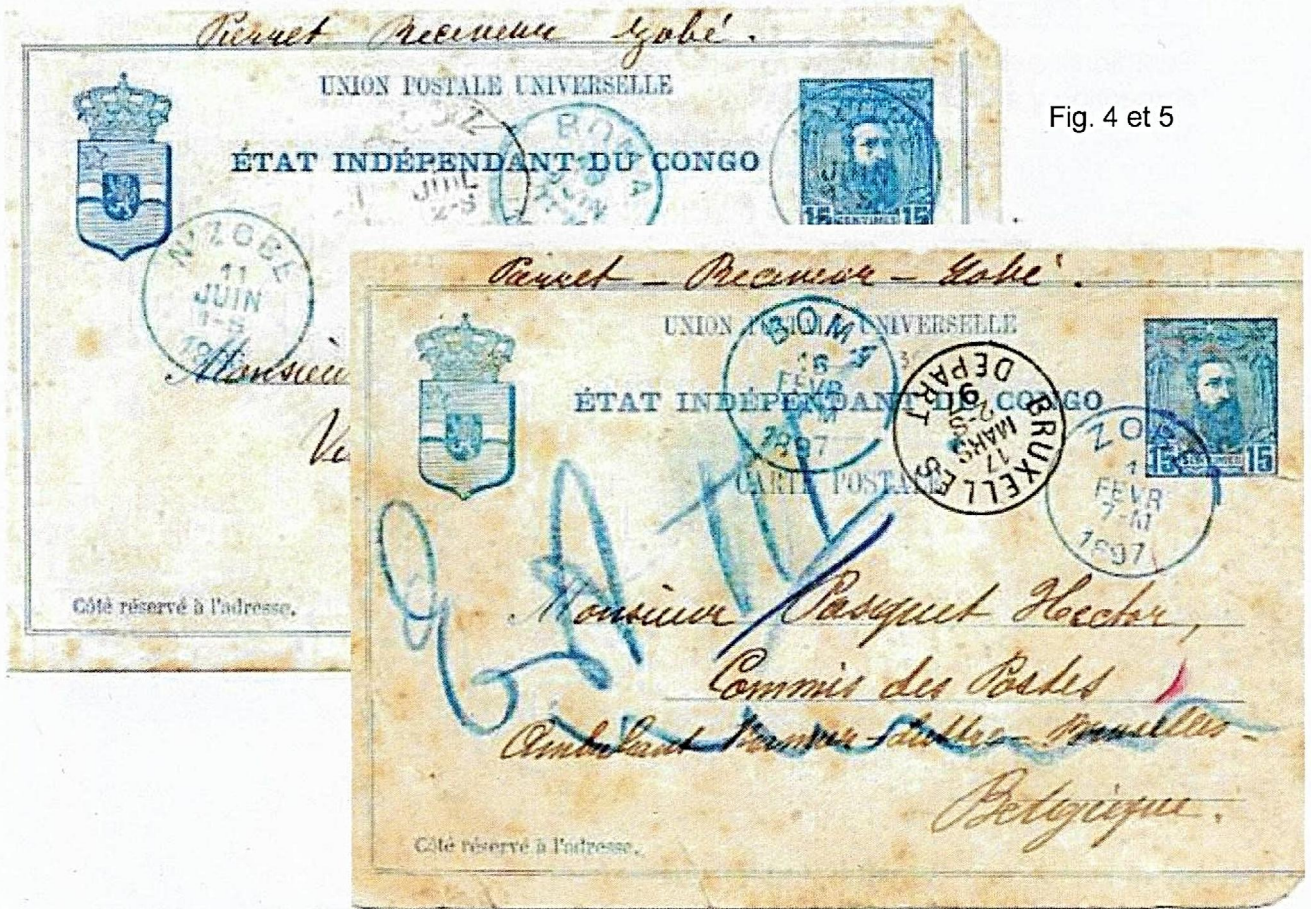 Fig. 4 et 5
Pierret Receveur Zobé.
UNION POSTALE UNIVERSELLE
ÉTAT INDÉPENDANT DU CONGO
BOMA
JUIN
JUIL
2-S
15 CENTIMES 15
N'ZOBÉ
11
JUIN
1-S
Monsieur
Côté réservé à l'adresse.
Pierret – Receveur – Zobé.
UNION POSTALE UNIVERSELLE
ÉTAT INDÉPENDANT DU CONGO
CARTE POSTALE
BOMA
16
FEVR
1897
BRUXELLES
17
MARS
2-S
97
DEPART
ZOBÉ
1
FEVR
7-M
1897
15 CENTIMES 15
Monsieur Pasquet Hector,
Commis des Postes
Ambulant Bruxelles –
Belgique.
Côté réservé à l'adresse.